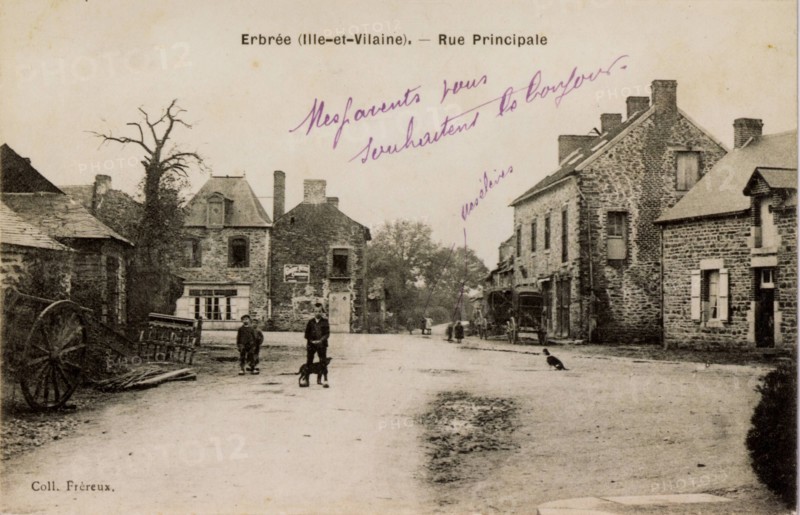 Erbrée (Ille-et-Vilaine). — Rue Principale
Mes parents vous
souhaitent le bonjour
Coll. Fréreux.
PHOTO12